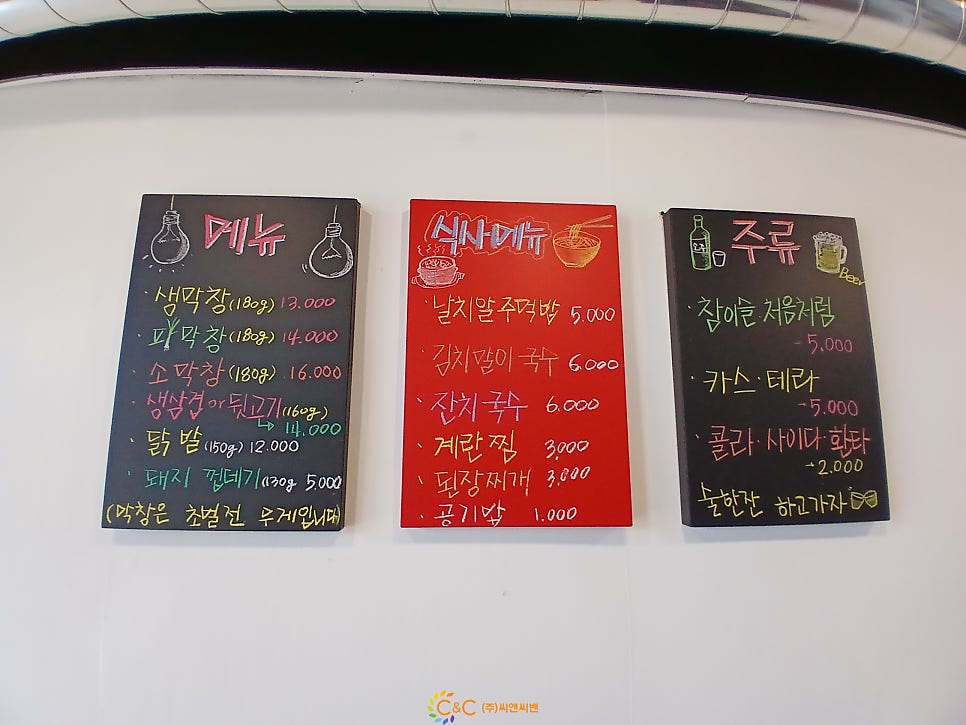 메뉴
· 생막창(180g) 13.000
· 파막창(180g) 14.000
· 소막창(180g) 16.000
· 생삼겹 or 뒷고기(160g)
↳ 14.000
· 닭발(150g) 12.000
· 돼지 껍데기(130g 5.000
(막창은 초벌전 무게입니다)
식사메뉴
· 날치알주먹밥 5.000
· 김치말이 국수 6.000
· 잔치국수 6.000
· 계란찜 3.000
· 된장찌개 3.000
· 공기밥 1.000
주류
Beer
· 참이슬·처음처럼
- 5.000
· 카스·테라
→5.000
· 콜라·사이다·환타
→2.000
술한잔 하고가자
C&C (주)씨앤씨밴